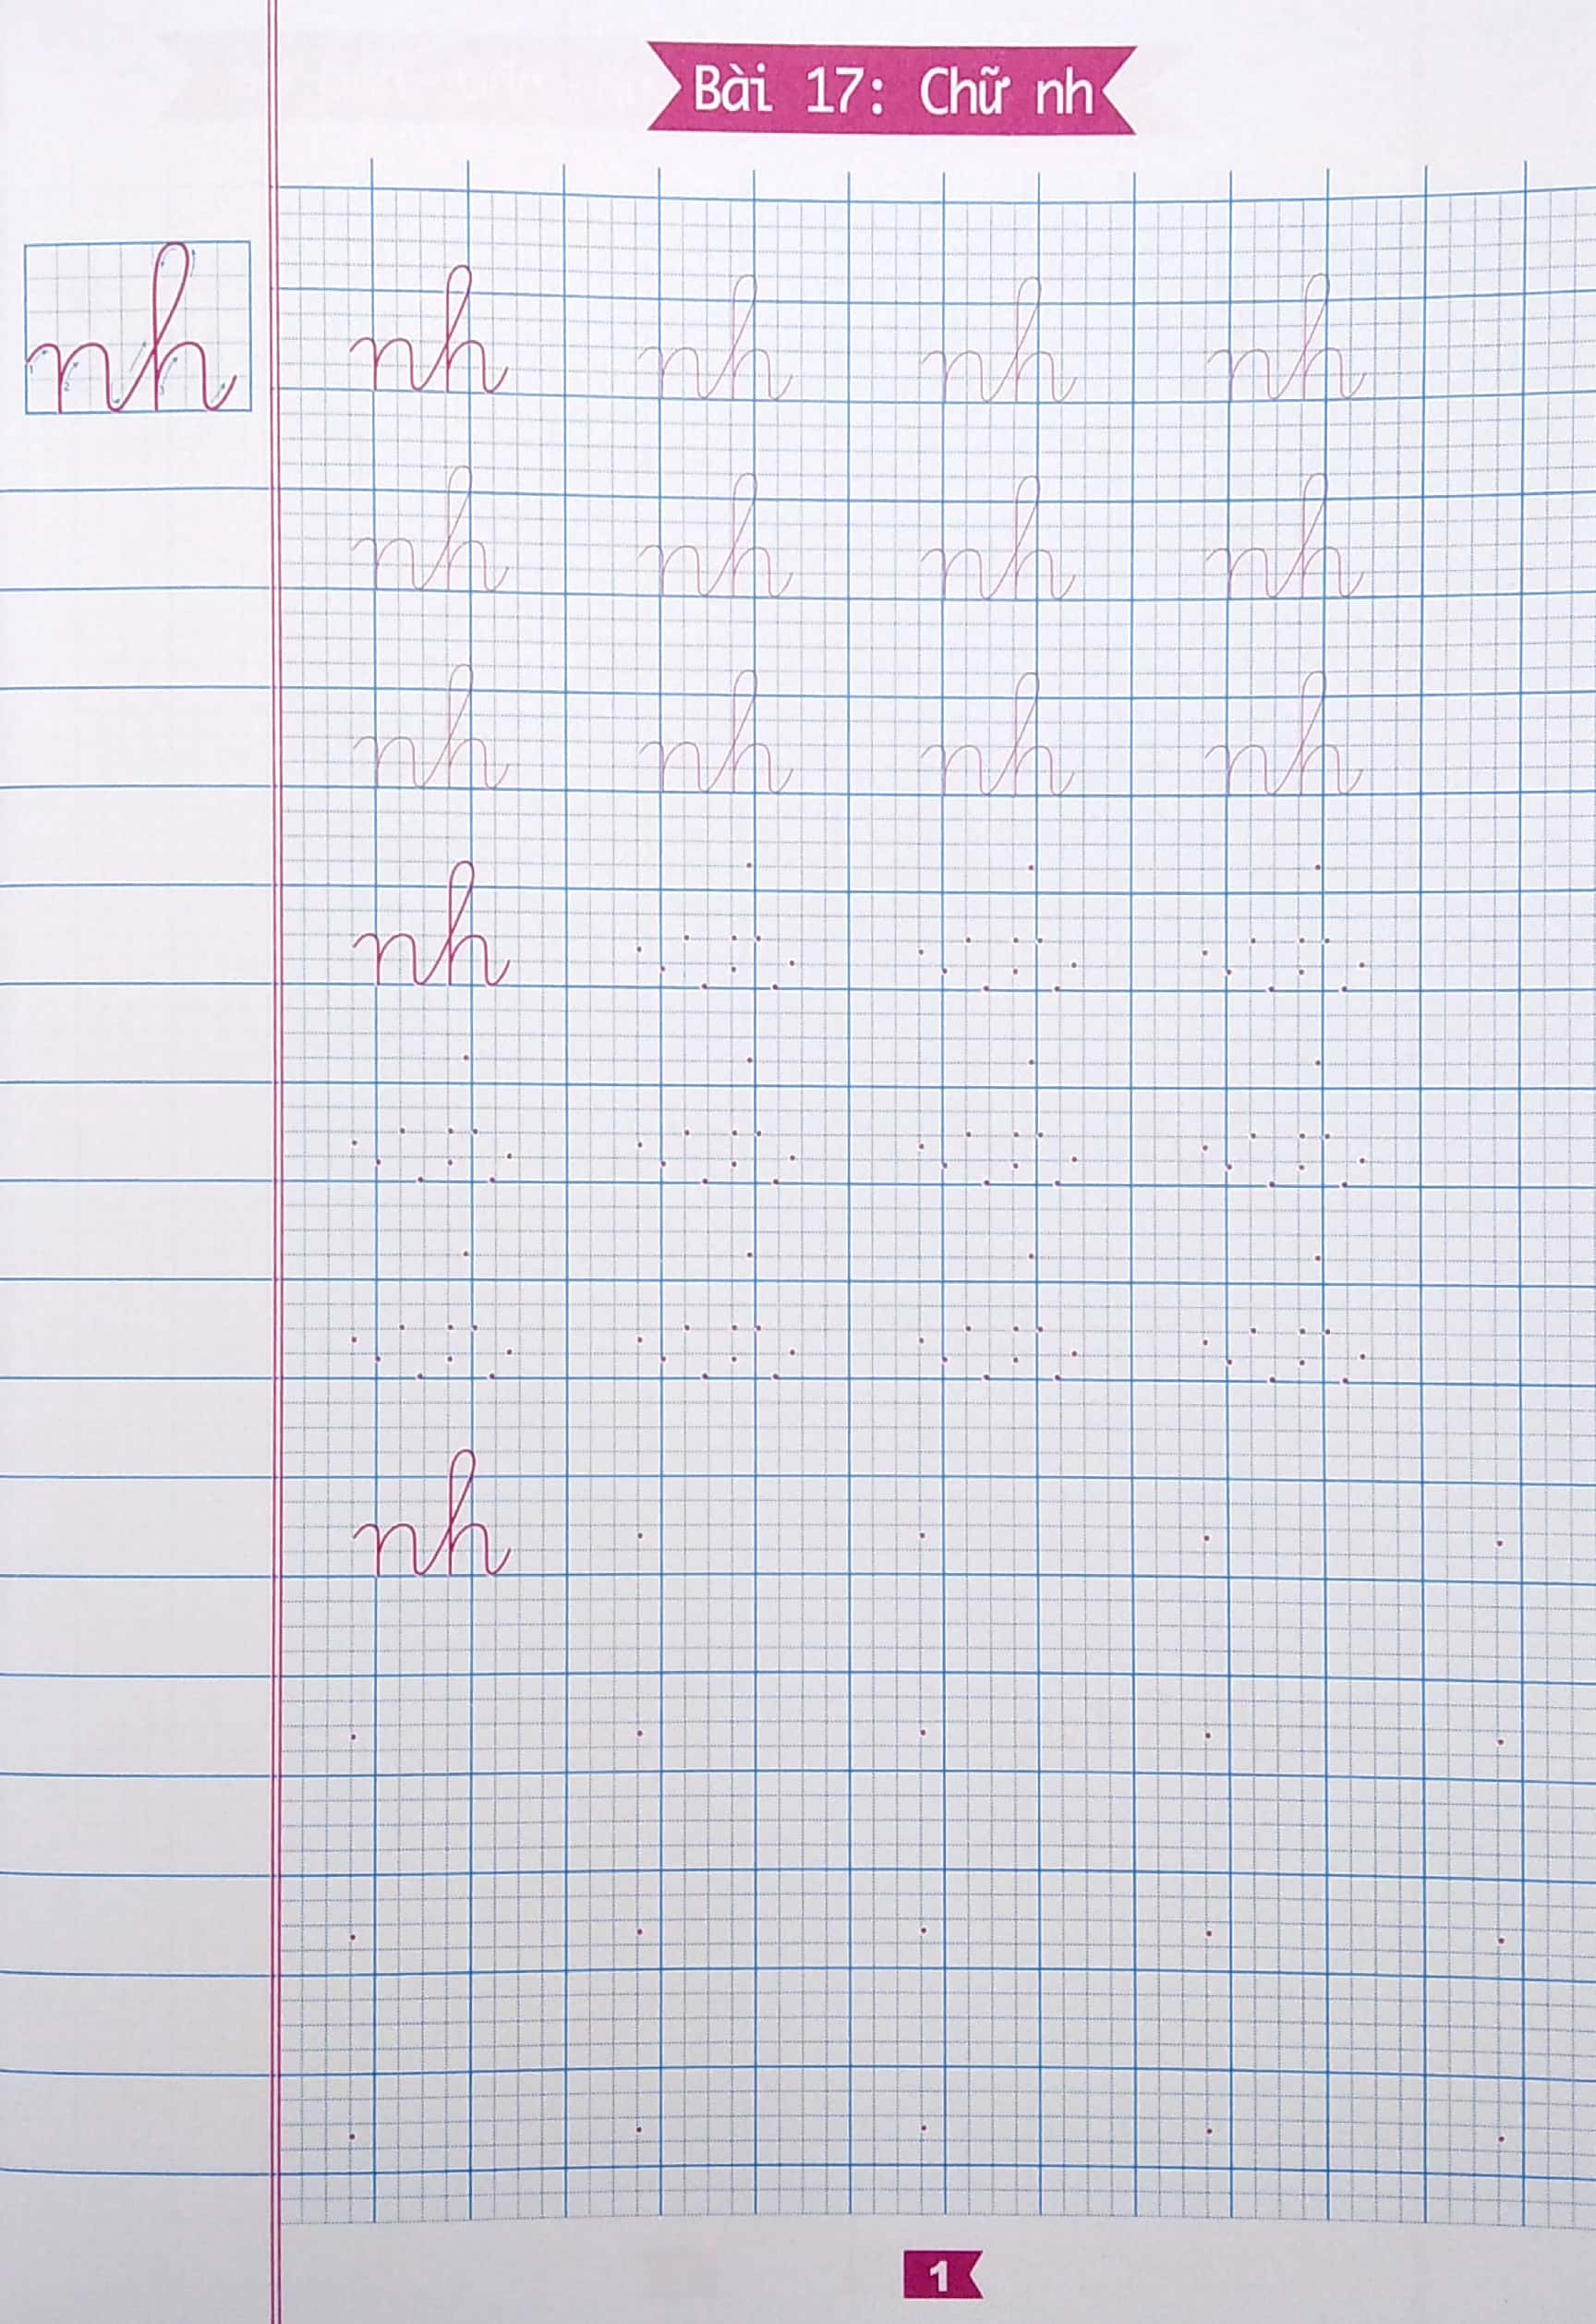 Bài 17: Chữ nh
nh
nh nh nh nh
nh nh nh nh
nh nh nh nh
nh
nh
1